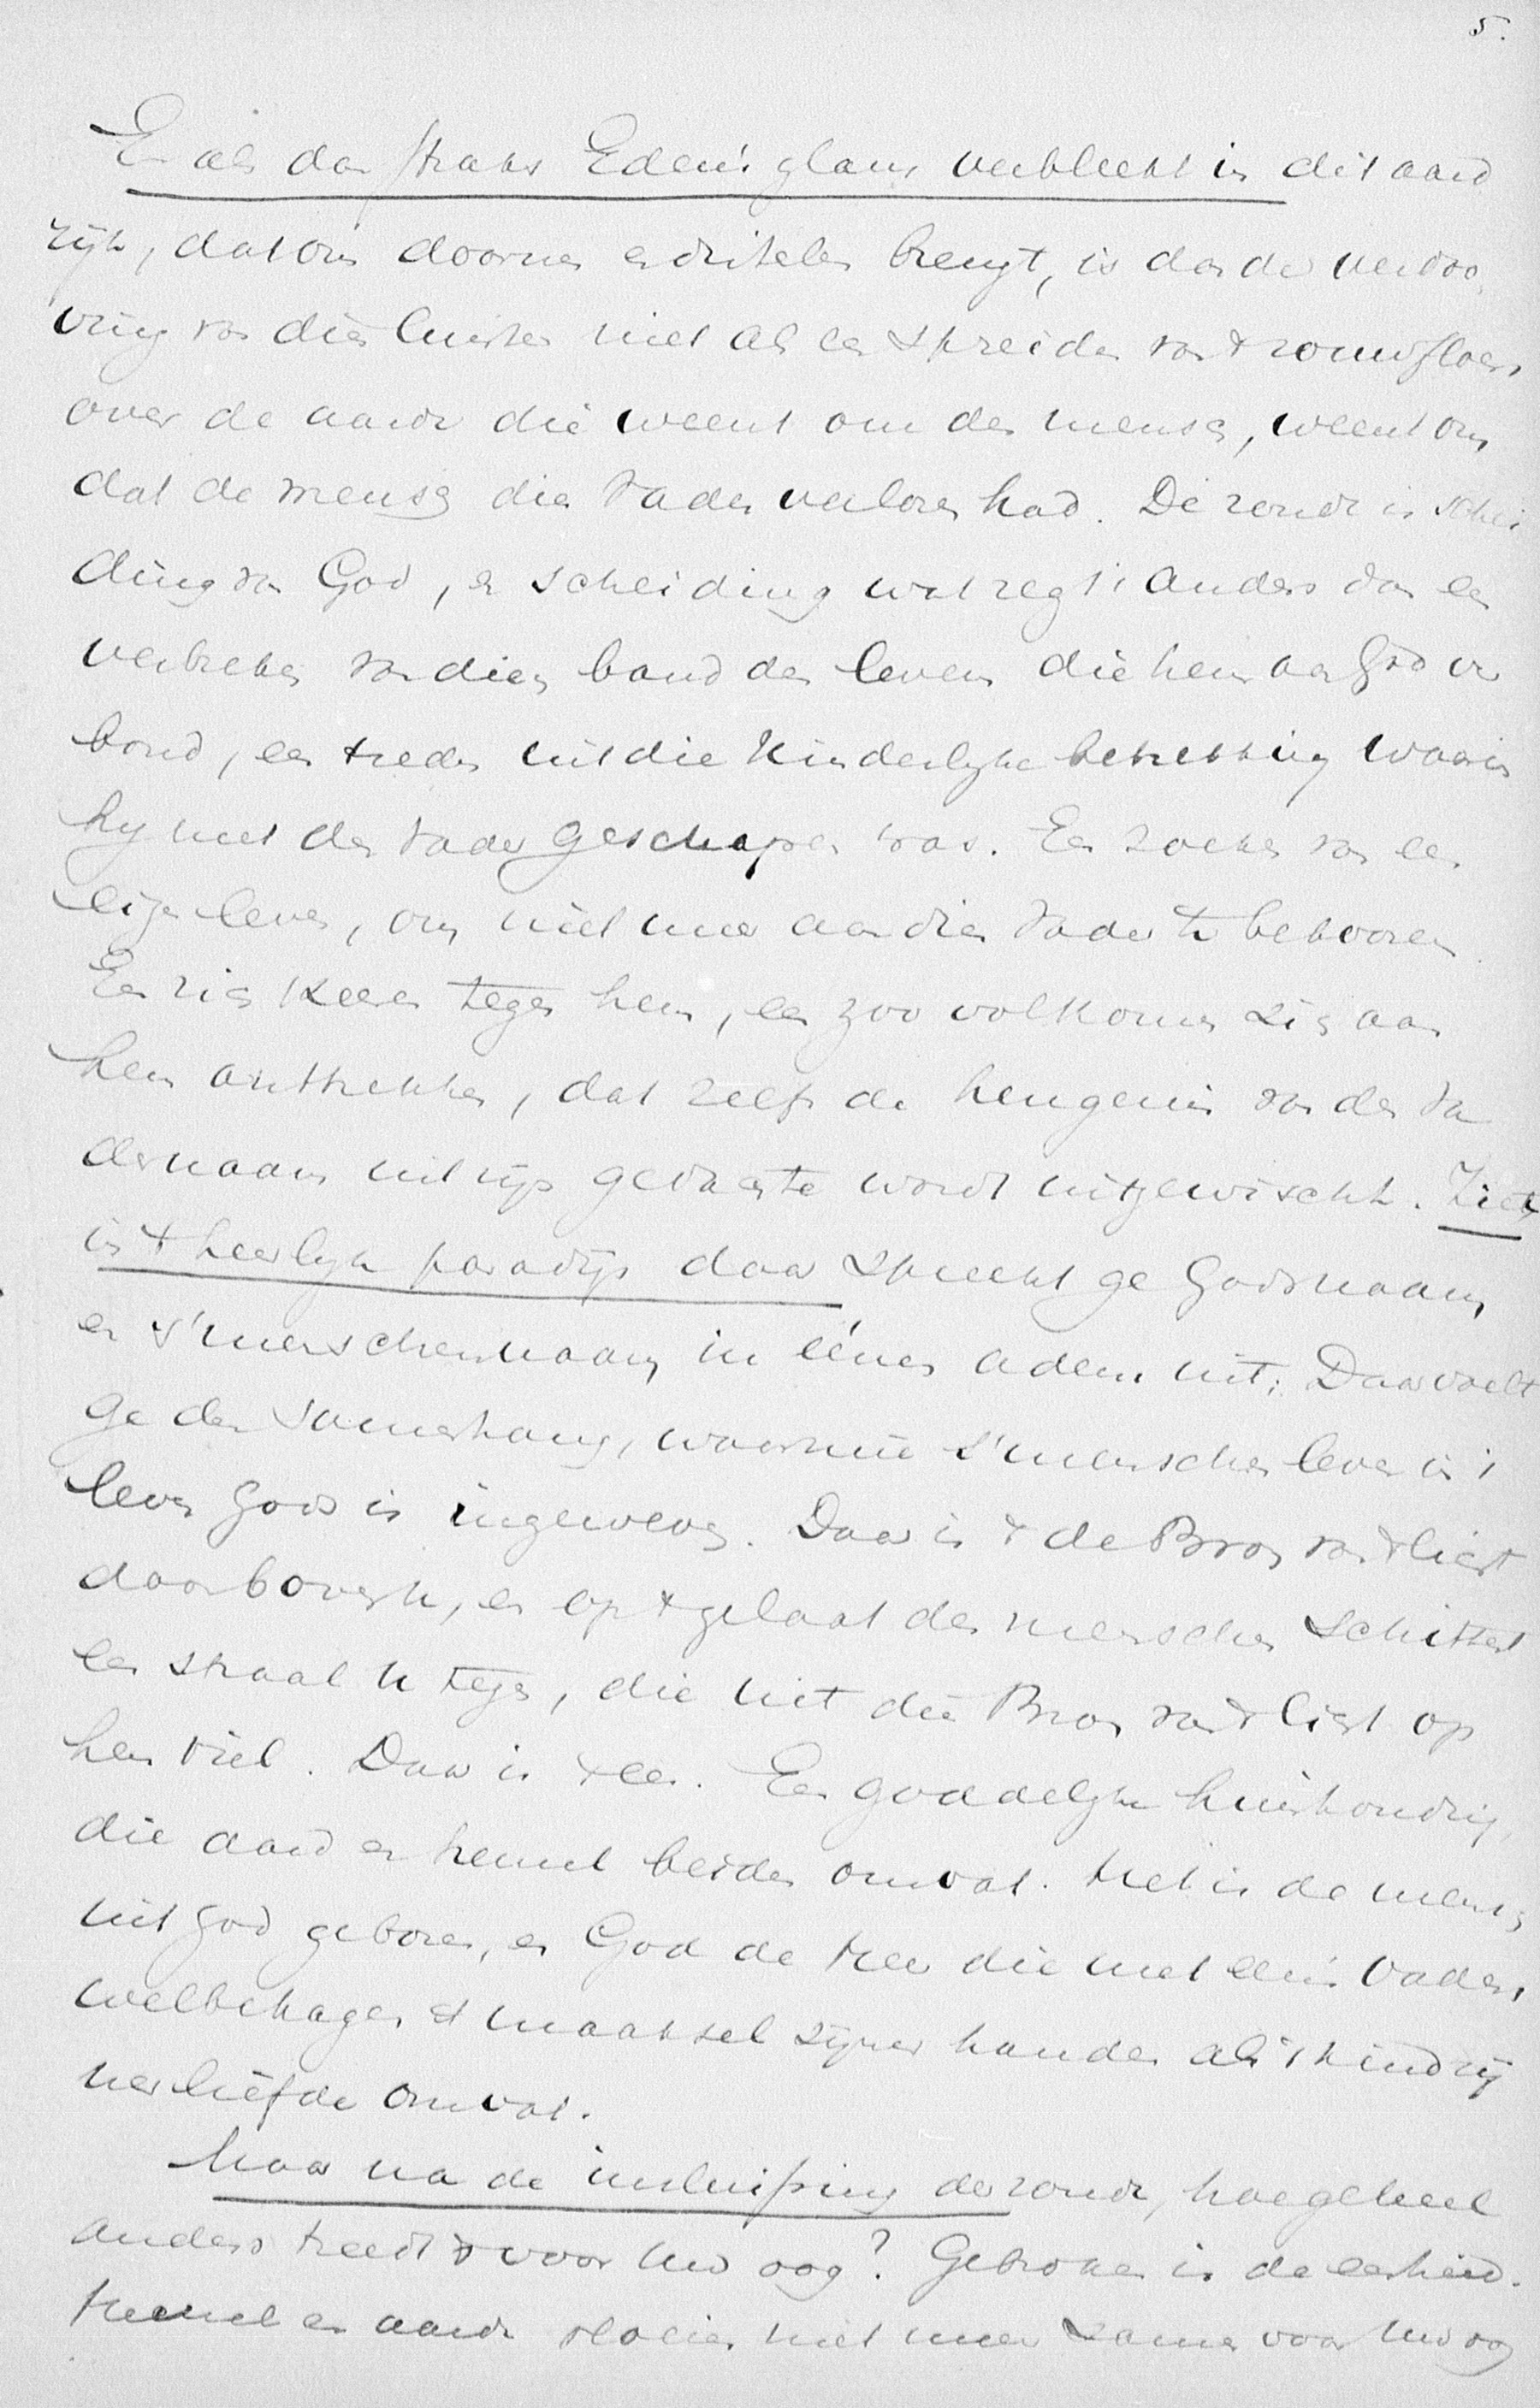 5.
En als dan straks Eden's glans verbleekt in dit aard
rijk, dat ons doornen en distelen brengt, is dan de verdoo
ving van dien luister niet als een spreiden van 't rouwfloers
over de aarde die weent om den mensch, weent om
dat de mensch dien Vader verloren had. De zonde is schei
ding van God, en scheiding wat zegt 't anders dan een
verbreken van dien band des levens die hem aan God ver
bond, een treden uit die kinderlijke betrekking waarin
hij met den Vader geschapen was. Een zoeken van een
eigen leven, om niet meer aan dien Vader te behooren.
Een zich keeren tegen hem, een zoo volkomen zich aan
hem onttrekken, dat zelfs de heugenis van den Va
dernaam uit zijn gedachte wordt uitgewischt. Ziet,
in 't heerlijk paradijs daar spreekt ge Gods naam
en 's menschen naam in éénen adem uit; Daar voelt
ge den samenhang, waarmee 's menschen leven in 't
leven Gods is ingeweven. Daar is 't de Bron van 't licht
daarboven u, en op 't gelaat des menschen schittert
een straal u tegen, die uit die Bron van 't licht op
hem viel. Daar is 't een. Een goddelijke huishouding,
die aard en hemel beiden omvat. Het is de mensch
uit God geboren, en God de Heer die met een Vaders
welbehagen 't maaksel zijner handen als 't kind zij
ner liefde omvat.
Maar na de insluiping der zonde, hoe geheel
anders treedt 't voor uw oog? Gebroken is de eenheid.
Hemel en aarde vloeien niet meer samen voor uw oog